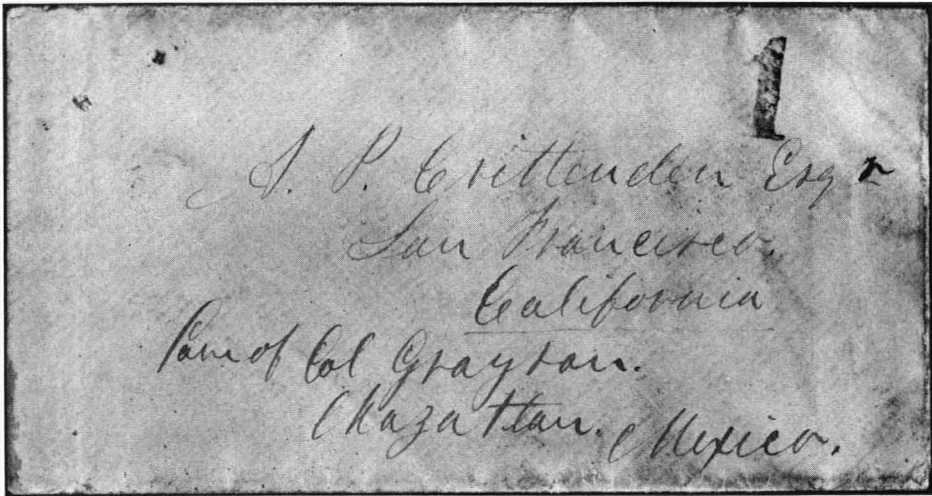 1
A. P. Crittenden Esqr
San Francisco.
California
Care of Col Grayson.
Mazatlan. Mexico.